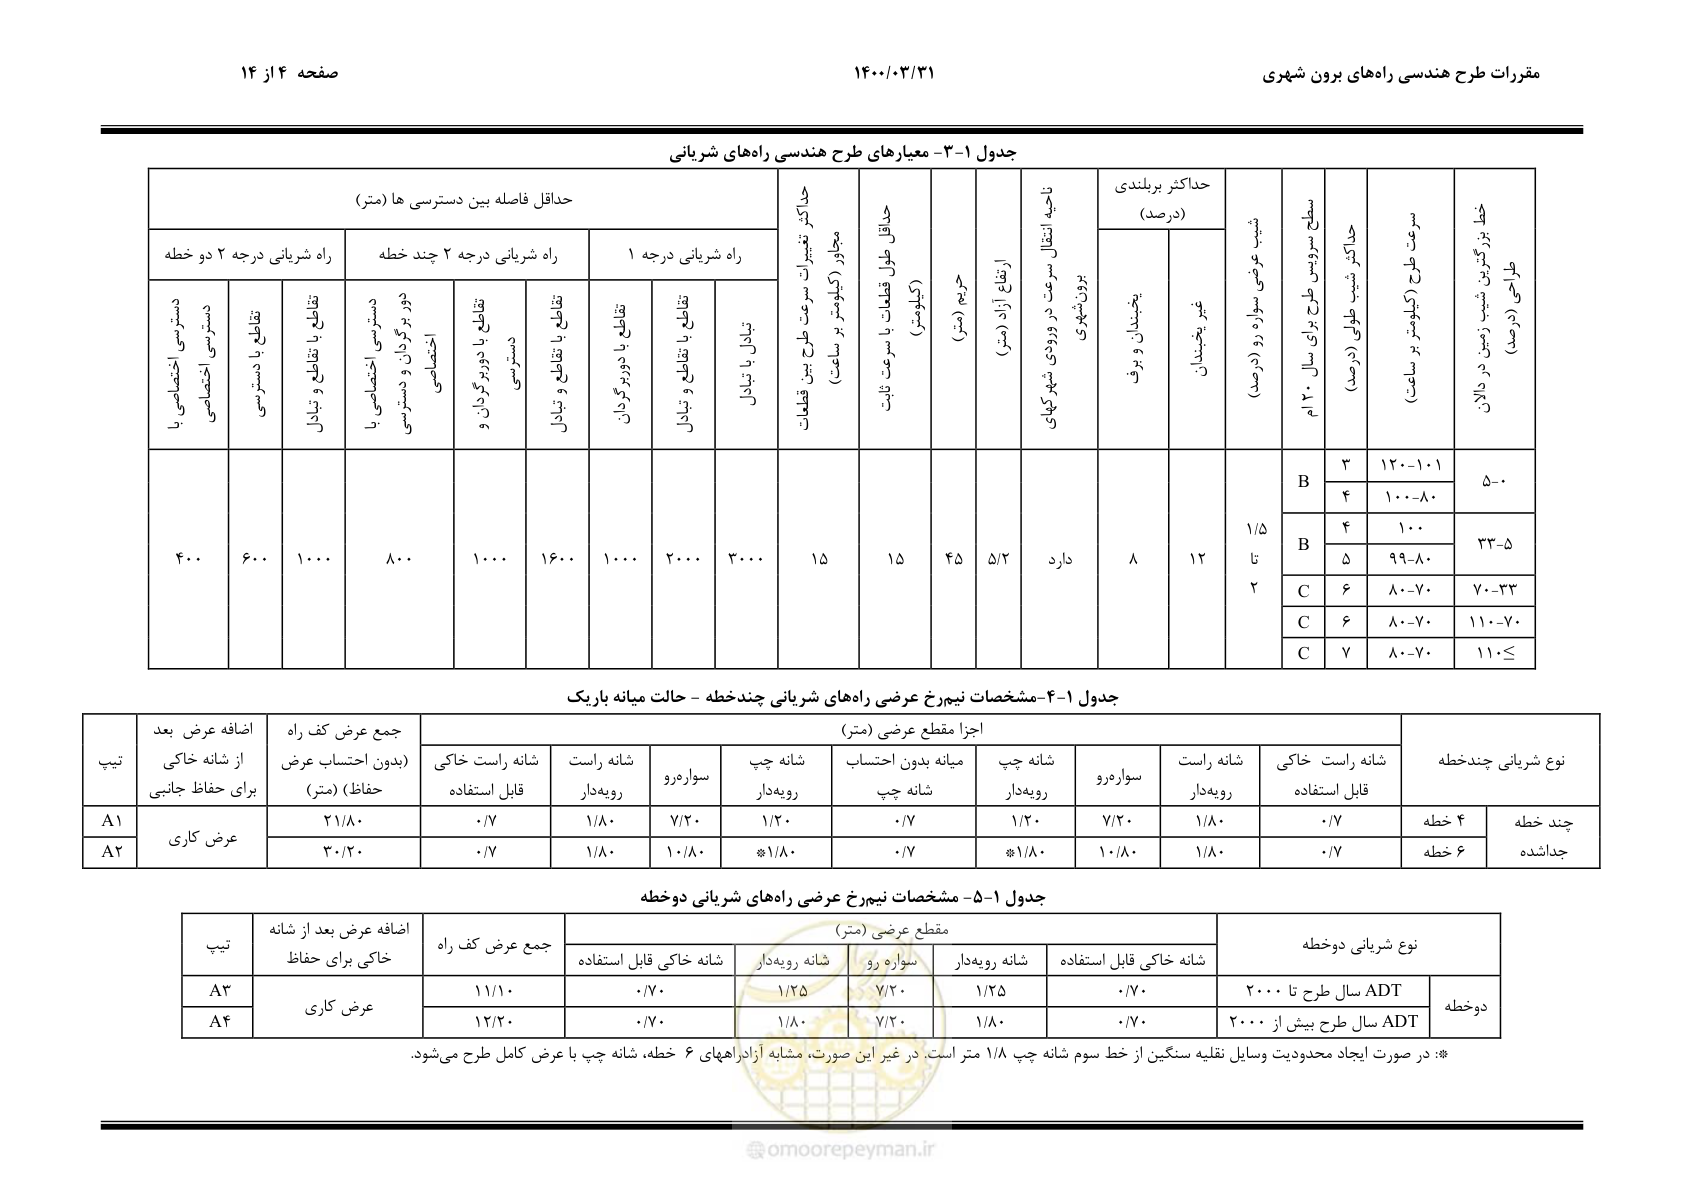 مقررات طرح هندسی راه‌های برون شهری
۱۴۰۰/۰۳/۳۱
صفحه ۴ از ۱۴
جدول ۱-۳- معیارهای طرح هندسی راه‌های شریانی
خط بزرگترین شیب زمین در دالان
طراحی (درصد)
سرعت طرح (کیلومتر بر ساعت)
حداکثر شیب طولی (درصد)
سطح سرویس طرح برای سال ۲۰ ام
شیب عرضی سواره رو (درصد)
حداکثر بربلندی
(درصد)
غیر یخبندان
یخبندان و برف
ناحیه انتقال سرعت در ورودی شهرکهای
برون‌شهری
ارتفاع آزاد (متر)
حریم (متر)
حداقل طول قطعات با سرعت ثابت
(کیلومتر)
حداکثر تغییرات سرعت طرح بین قطعات
مجاور (کیلومتر بر ساعت)
حداقل فاصله بین دسترسی ها (متر)
راه شریانی درجه ۱
راه شریانی درجه ۲ چند خطه
راه شریانی درجه ۲ دو خطه
تبادل با تبادل
تقاطع با تقاطع و تبادل
تقاطع با دوربرگردان
تقاطع با تقاطع و تبادل
تقاطع با دوربرگردان و
دسترسی
دسترسی اختصاصی با
دور برگردان و دسترسی
اختصاصی
تقاطع با تقاطع و تبادل
تقاطع با دسترسی
دسترسی اختصاصی با
دسترسی اختصاصی
۵-۰
۱۲۰-۱۰۱
۳
B
۱۰۰-۸۰
۴
۳۳-۵
۱۰۰
۴
B
۹۹-۸۰
۵
۷۰-۳۳
۸۰-۷۰
۶
C
۱۱۰-۷۰
۸۰-۷۰
۶
C
≥۱۱۰
۸۰-۷۰
۷
C
۱/۵
تا
۲
۱۲
۸
دارد
۵/۲
۴۵
۱۵
۱۵
۳۰۰۰
۲۰۰۰
۱۰۰۰
۱۶۰۰
۱۰۰۰
۸۰۰
۱۰۰۰
۶۰۰
۴۰۰
جدول ۱-۴-مشخصات نیم‌رخ عرضی راه‌های شریانی چندخطه - حالت میانه باریک
نوع شریانی چندخطه
اجزا مقطع عرضی (متر)
شانه راست خاکی
قابل استفاده
شانه راست
رویه‌دار
سواره‌رو
شانه چپ
رویه‌دار
میانه بدون احتساب
شانه چپ
شانه چپ
رویه‌دار
سواره‌رو
شانه راست
رویه‌دار
شانه راست خاکی
قابل استفاده
جمع عرض کف راه
(بدون احتساب عرض
حفاظ) (متر)
اضافه عرض بعد
از شانه خاکی
برای حفاظ جانبی
تیپ
چند خطه
جداشده
۴ خطه
۰/۷
۱/۸۰
۷/۲۰
۱/۲۰
۰/۷
۱/۲۰
۷/۲۰
۱/۸۰
۰/۷
۲۱/۸۰
عرض کاری
A۱
۶ خطه
۰/۷
۱/۸۰
۱۰/۸۰
۱/۸۰*
۰/۷
۱/۸۰*
۱۰/۸۰
۱/۸۰
۰/۷
۳۰/۲۰
A۲
جدول ۱-۵- مشخصات نیم‌رخ عرضی راه‌های شریانی دوخطه
نوع شریانی دوخطه
مقطع عرضی (متر)
شانه خاکی قابل استفاده
شانه رویه‌دار
سواره رو
شانه رویه‌دار
شانه خاکی قابل استفاده
جمع عرض کف راه
اضافه عرض بعد از شانه
خاکی برای حفاظ
تیپ
دوخطه
ADT سال طرح تا ۲۰۰۰
۰/۷۰
۱/۲۵
۷/۲۰
۱/۲۵
۰/۷۰
۱۱/۱۰
عرض کاری
A۳
ADT سال طرح بیش از ۲۰۰۰
۰/۷۰
۱/۸۰
۷/۲۰
۱/۸۰
۰/۷۰
۱۲/۲۰
A۴
*: در صورت ایجاد محدودیت وسایل نقلیه سنگین از خط سوم شانه چپ ۱/۸ متر است. در غیر این صورت، مشابه آزادراههای ۶ خطه، شانه چپ با عرض کامل طرح می‌شود.
@omoorepeyman.ir